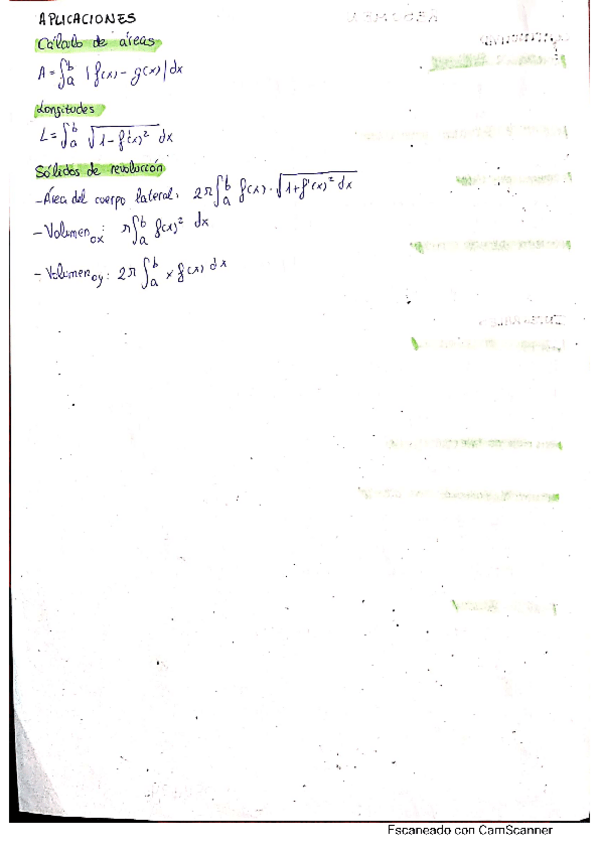 APLICACIONES
Cálculo de áreas
A = ∫_a^b |f(x) - g(x)| dx
Longitudes
L = ∫_a^b √(1 - f'(x)²) dx
Sólidos de revolución
- Área del cuerpo lateral: 2π ∫_a^b f(x) · √(1 + f'(x)²) dx
- Volumen ox: π ∫_a^b f(x)² dx
- Volumen oy: 2π ∫_a^b x f(x) dx
Escaneado con CamScanner